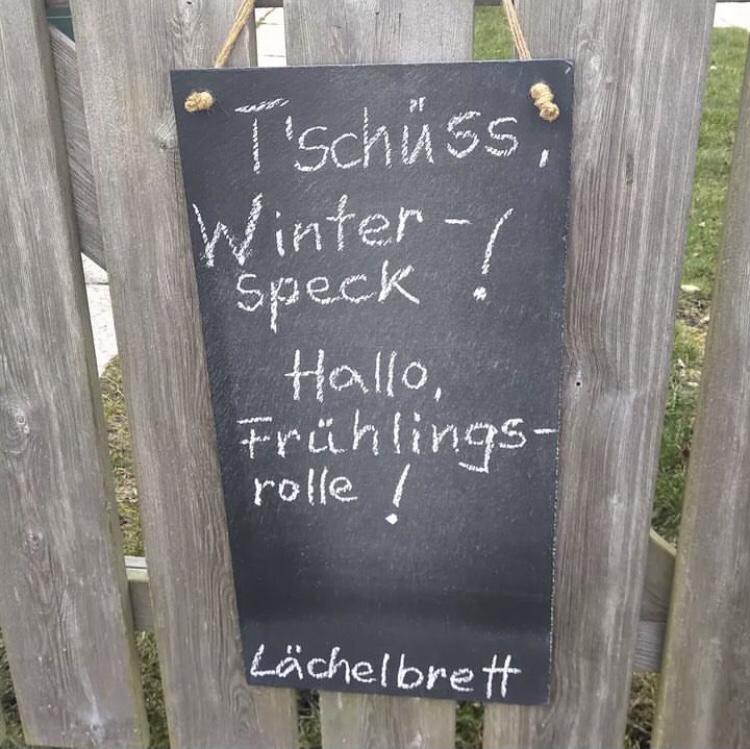 T'schüss,
Winter-!
speck
Hallo,
Frühlings-
rolle!
Lächelbrett